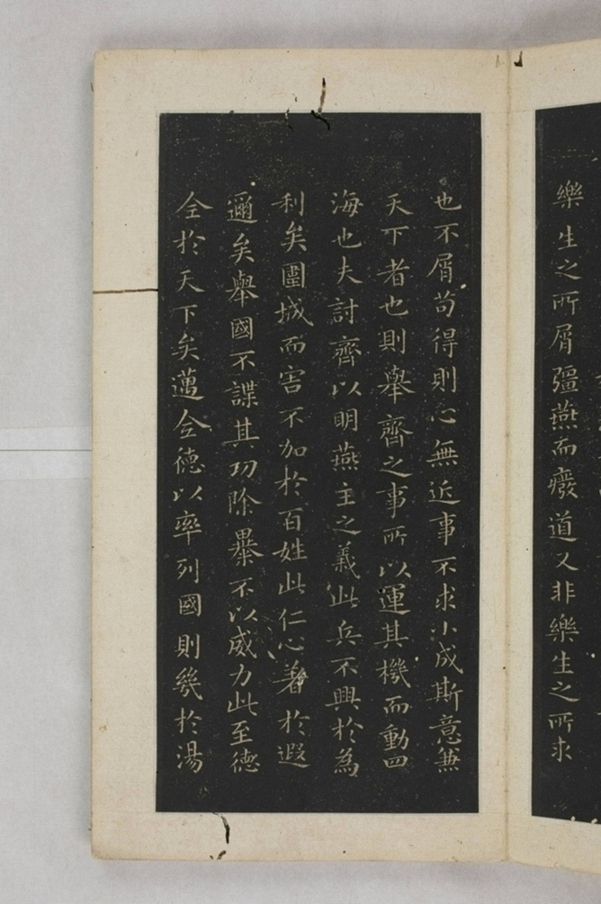 樂生之所屑彊燕而廢道又非樂生之所求
也不屑苟得則心無近事不求小成斯意兼
天下者也則舉齊之事所以運其機而動四
海也夫討齊以明燕主之義此兵不興於為
利矣圍城而害不加於百姓此仁心著於遐
邇矣舉國不謀其功除暴不以威力此至德
全於天下矣邁全德以率列國則幾於湯